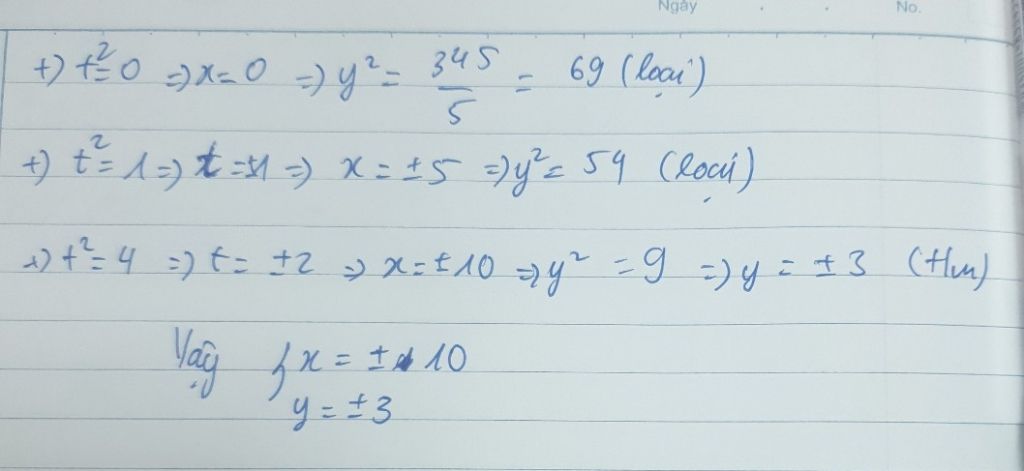 Ngày . . No.
+) t² = 0 => x = 0 => y² = 345/5 = 69 (loại)
+) t² = 1 => t = ±1 => x = ±5 => y² = 54 (loại)
+) t² = 4 => t = ±2 => x = ±10 => y² = 9 => y = ±3 (t/m)
Vậy { x = ± 10
y = ±3